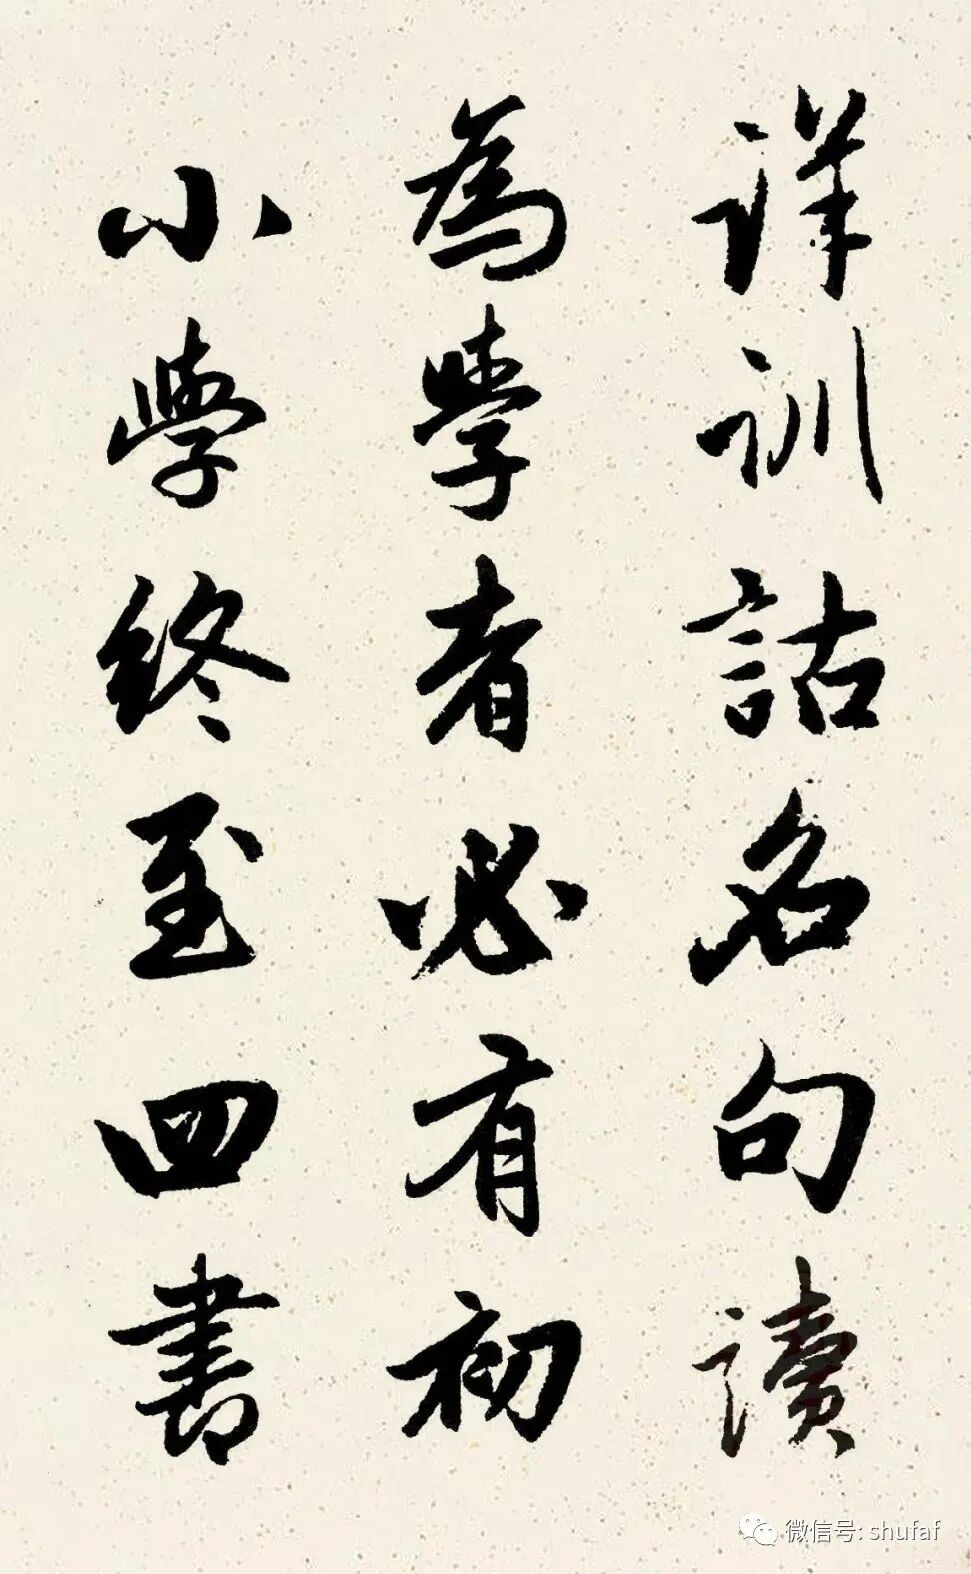 詳訓詁名句讀
為學者必有初
小學終至四書
微信号: shufaf